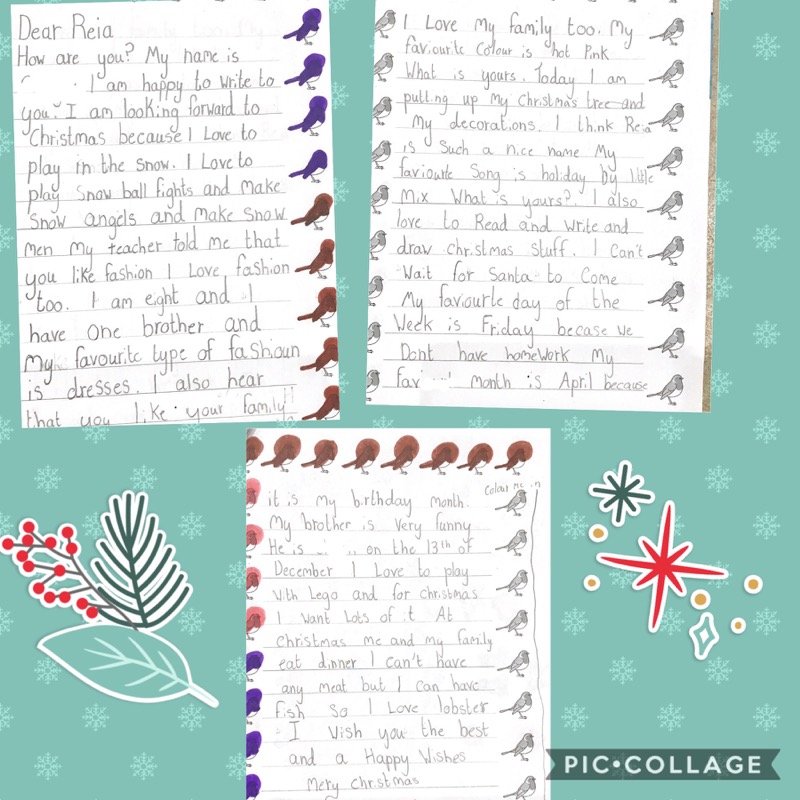 Dear Reia
How are you? My name is
I am happy to write to
you. I am looking forward to
Christmas because I Love to
play in the snow. I Love to
play Snow ball fights and Make
Snow angels and Make Snow
men My teacher told me that
you like fashion I Love fashion
too. I am eight and I
have One brother and
My favourite type of fashoun
is dresses. I also hear
that you like your family!!
I Love My family too. My
faviourite Colour is hot Pink
What is yours. Today I am
putting up My Christmas tree and
My decorations. I think Reia
is Such a nice name My
faviourite Song is holiday by little
Mix What is yours?. I also
love to Read and Write and
draw christmas stuff. I Can't
Wait for Santa to Come
My faviourite day of the
Week is Friday becasue We
Dont have homework My
month is April because
Colour me in
it is my birthday month.
My brother is Very funny
He is on the 13th of
December I Love to play
With Lego and for christmas
I want Lots of it At
Christmas me and my family
eat dinner I can't have
any meat but I can have
fish So I Love lobster
I Wish you the best
and a Happy Wishes
Mery christmas
PIC•COLLAGE